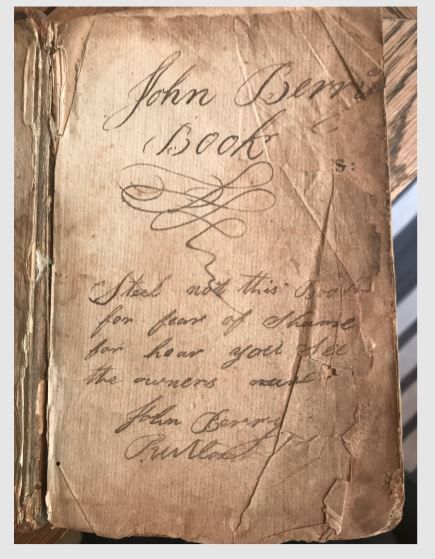 John Berry
Book
s:
Steel not this Book
for fear of Shame
for hear you See
the owners name
John Berry
Rutland